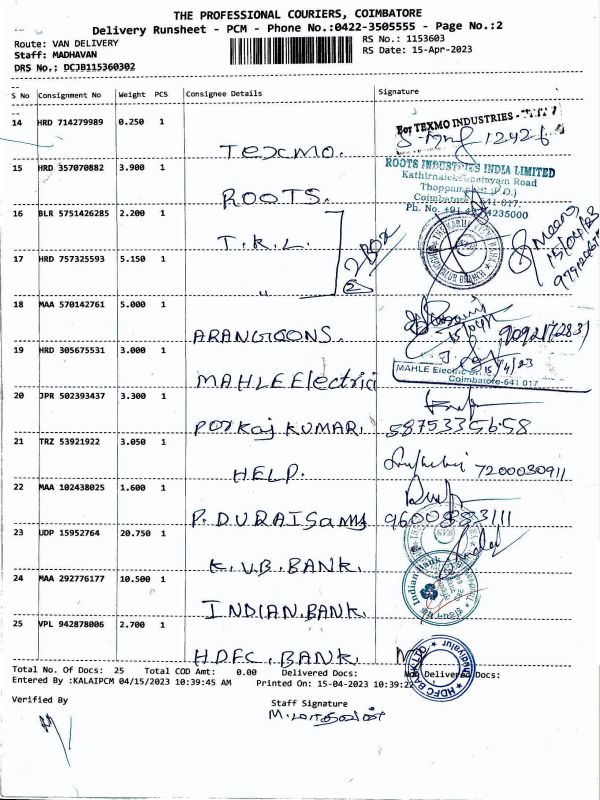 THE PROFESSIONAL COURIERS, COIMBATORE
Delivery Runsheet - PCM - Phone No.:0422-3505555 - Page No.:2
Route: VAN DELIVERY
RS No.: 1153603
Staff: MADHAVAN
RS Date: 15-Apr-2023
DRS No.: DCJB115360302
S No Consignment No Weight PCS Consignee Details Signature
14 HRD 714279989 0.250 1
For TEXMO INDUSTRIES -
12426
TEXMO.
15 HRD 357070882 3.900 1
ROOTS INDUSTRIES INDIA LIMITED
Road
Thoppampatti (P.O.)
Coimbatore - 641 017.
ROOTS.
16 BLR 5751426285 2.200 1
T.K.L.
2 BOX
15/04/23
17 HRD 757325593 5.150 1
"
18 MAA 570142761 5.000 1
15/04/
ARANGOONS.
19 HRD 305675531 3.000 1
15/4/23
MAHLE Electric
Coimbatore-641 017
MAHLE Electrici
20 JPR 502393437 3.300 1
KUMAR.
21 TRZ 53921922 3.050 1
HELP.
7200030911
22 MAA 102438025 1.600 1
P. DURAISamy
23 UDP 15952764 20.750 1
K.V.B. BANK.
24 MAA 292776177 10.500 1
Indian Bank
INDIAN. BANK.
25 VPL 942878006 2.700 1
HDFC BANK LTD
HDFC. BANK.
Total No. Of Docs: 25 Total COD Amt: 0.00 Delivered Docs: Not Delivered Docs:
Entered By :KALAIPCM 04/15/2023 10:39:45 AM Printed On: 15-04-2023 10:39:22
Verified By
Staff Signature
M.மாதவன்